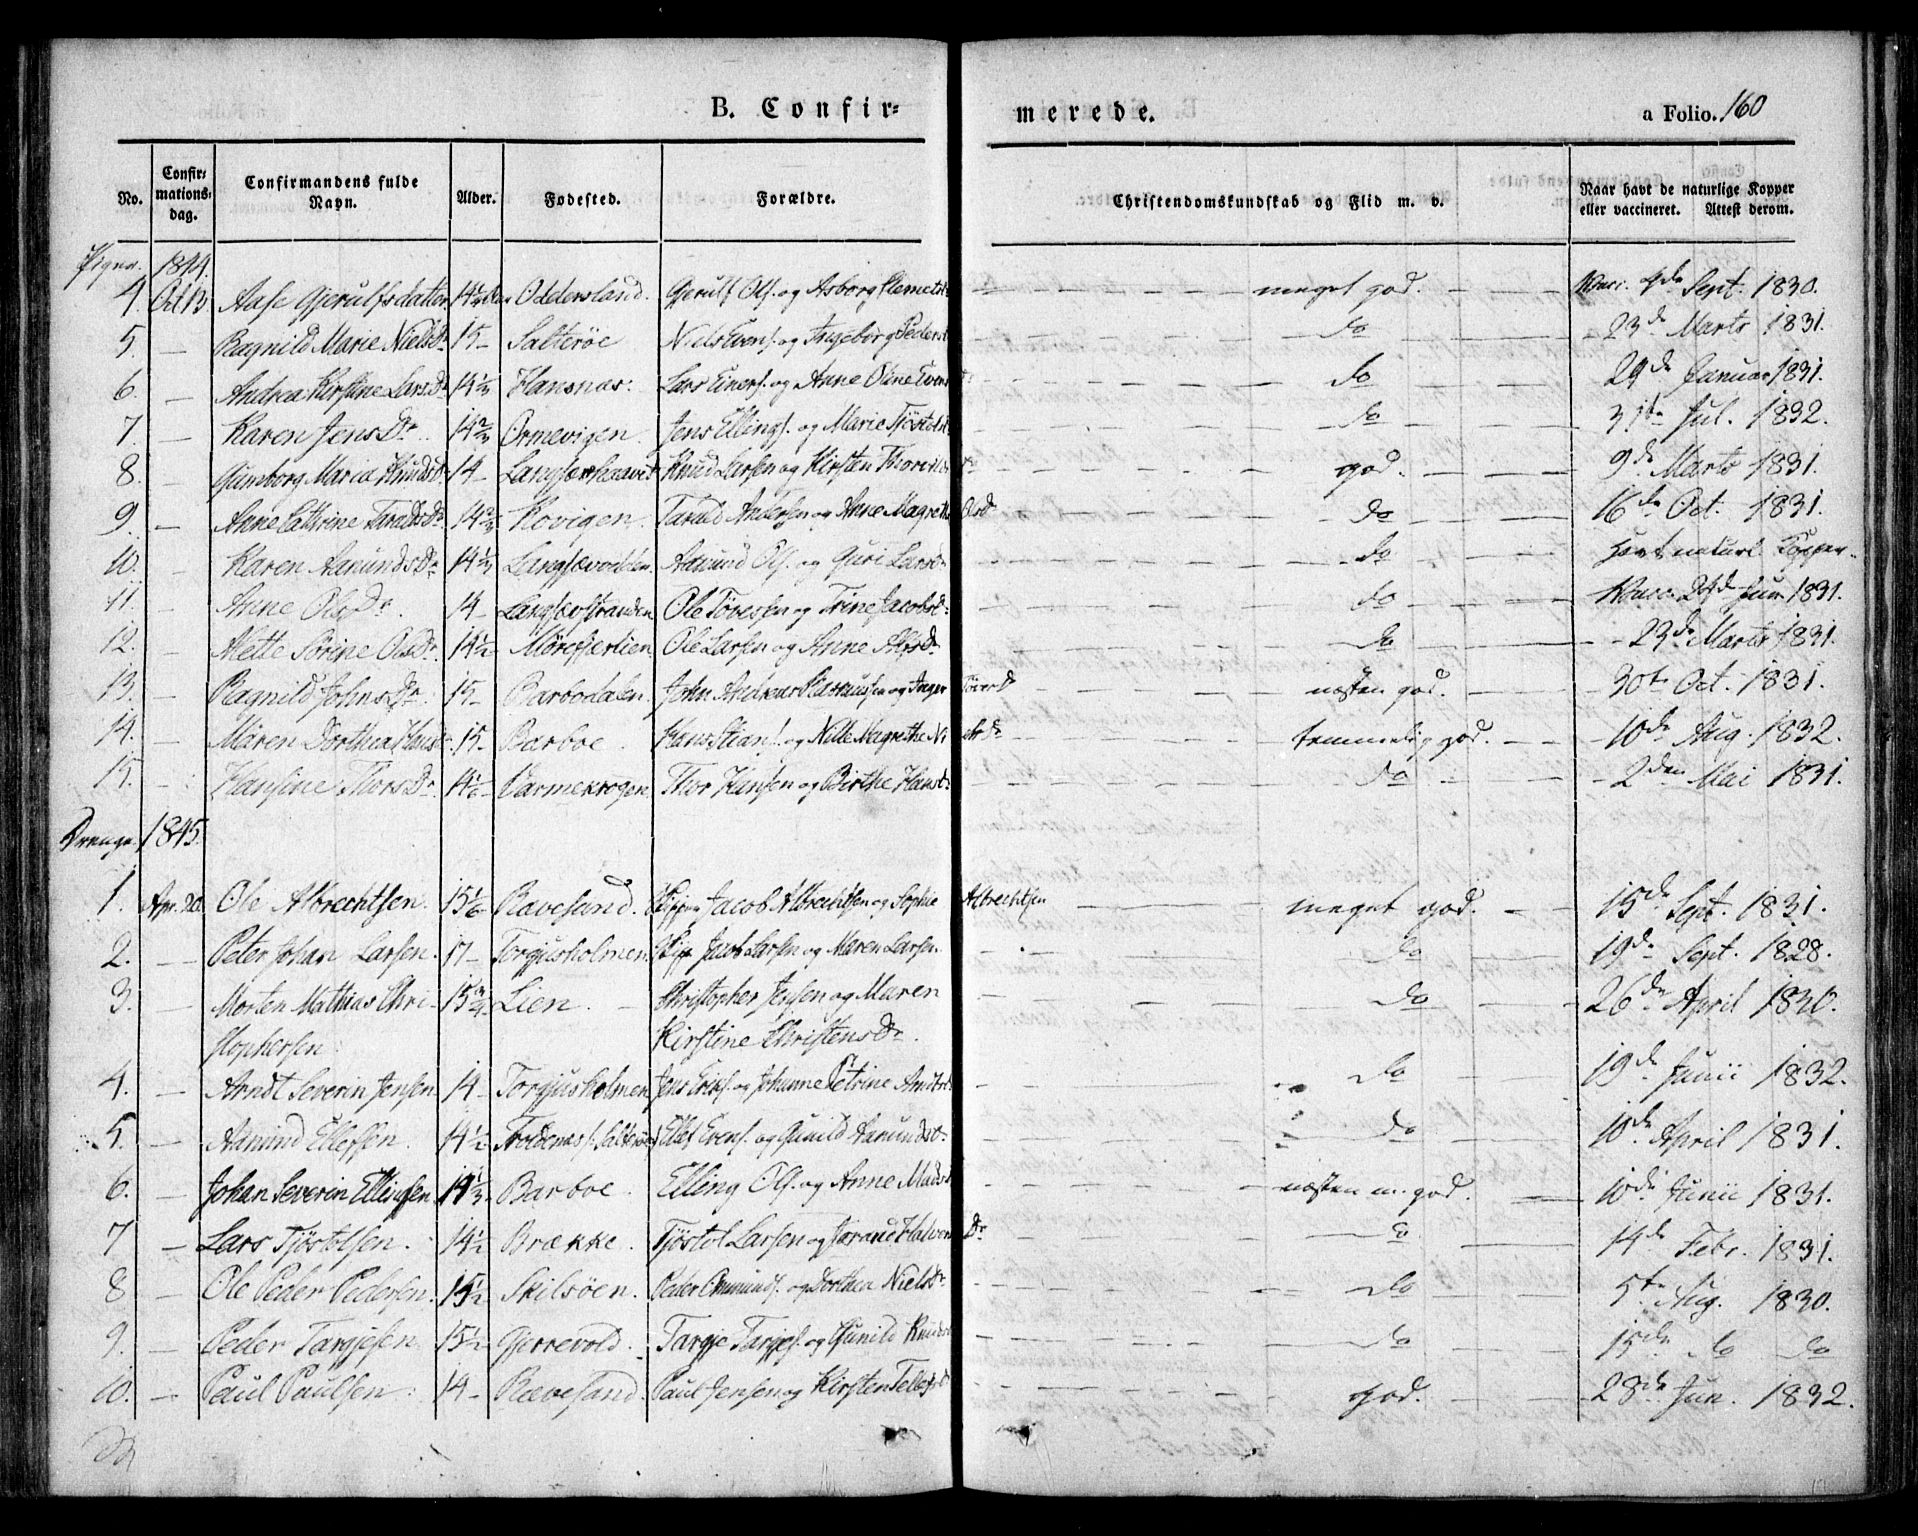 B. Confirmerede.
a Folio. 160
No. Confirmationsdag. Confirmandens fulde Navn. Alder. Fødested. Forældre. Christendomskundskab og Flid m. v. Naar havt de naturlige Kopper eller vaccineret. Attest derom.
Piger. 1844.
4. Oct. 13. Aase Gjerulfsdatter Oddersland. Gjerulf Ols. og Asborg Clemetsd. meget god. Vacc. 4de Sept. 1830.
5. — Ragnild Marie NielsDr 15 — Salterøe Niels Evens. og Ingeborg Pedersd. do 23de Marts 1831.
6. — Andrea Kirstine LarsDr 14 1/2 Hansnæs. Lars Einers. og Anne Oline Evensd: do 24de Januar 1831.
7. — Karen JensDr. 14 2/3 Ormevigen. Jens Ellings. og Marie Tjöstelsd. do 31te Jul. 1832.
8. — Gunborg Maria KnudsDr 14 — Knud Larsen og Kirsten god. 9de Marts 1831.
9. — Anne Cathrine TaraldsDr 14 2/3 Kovigen. Tarald Andersen og Anne Magrethe Olsdr do 16de Oct. 1831.
10. — Karen AamundsDr 14 1/2 Aamund Ols. og Guri Larsd. do Havt naturl. Kopper.
11. — Anne OlsDr. 14 — Langsævstranden Ole Tövesen og Trine JacobsD: do Vacc. 24de Jun. 1831.
12. — Mette Sørine OlsDr. 14 1/2 Mørefjærlien. Ole Larsen og Anne do 23de Marts 1831.
13. — Ragnild JohnsDr. 15 — Barbodalen. John Andreas Rasmussen og Inger Tøvesd næsten god. 30te Oct. 1831.
14. — Maren Dorthea HansDr 15 — Barboe. Hans Stians. og Nille Magrethe temmelig god. 10de Aug. 1832.
15. — Hansine ThorsDr. 14 1/6 Varmekrogen. Thor Hansen og Birthe Hansd: do 2den Mai 1831.
Drenge. 1845.
1. Apr. 20. Ole Albrechtsen. 15 1/6 Ravesand. Skipper Jacob Albrechtsen og Sophie Albrechtsen meget god. 15de Sept. 1831.
2. — Peter Johan Larsen. 17 — Torgjusholmen. Skip. Jacob Larsen og Maren Larsen. do 19de Sept. 1828.
3. — Morten Mathias Chri- 15 3/4 Lien. Christopher Jensen og Maren do 26de April 1830.
stophersen. Kirstine ChristensDr.
4. — Arndt Severin Jensen 14 — Torgjusholmen Jens Eriks. og Johanne Petrine do 19de Junii 1832.
5. — Aamund Ellefsen. 14 1/2 Ellef Evens. og Gunild Aamundsd. do 10de April 1831.
6. — Johan Severin Ellingsen. 14 1/3 Barboe. Elling Ols. og Anne Madsd. næsten m. god. 10de Junii 1831.
7 — Lars Tjöstolsen. 14 1/2 Brække. Tjöstol Larsen og HalvorsDr do 14de Febr. 1831.
8 — Ole Peder Pedersen. 15 1/2 Skilsöen. Peder Omunds. og Dorthea NielsDr do 5te Aug. 1830.
9. — Peder Targjesen 15 1/2 Gjerrevold. Targje Targjes. og Gunild Knudsd do 15de do do
10. — Paul Paulsen. 14 — Rævesand. Paul Jensen og Kirsten god. 28de Jun. 1832.